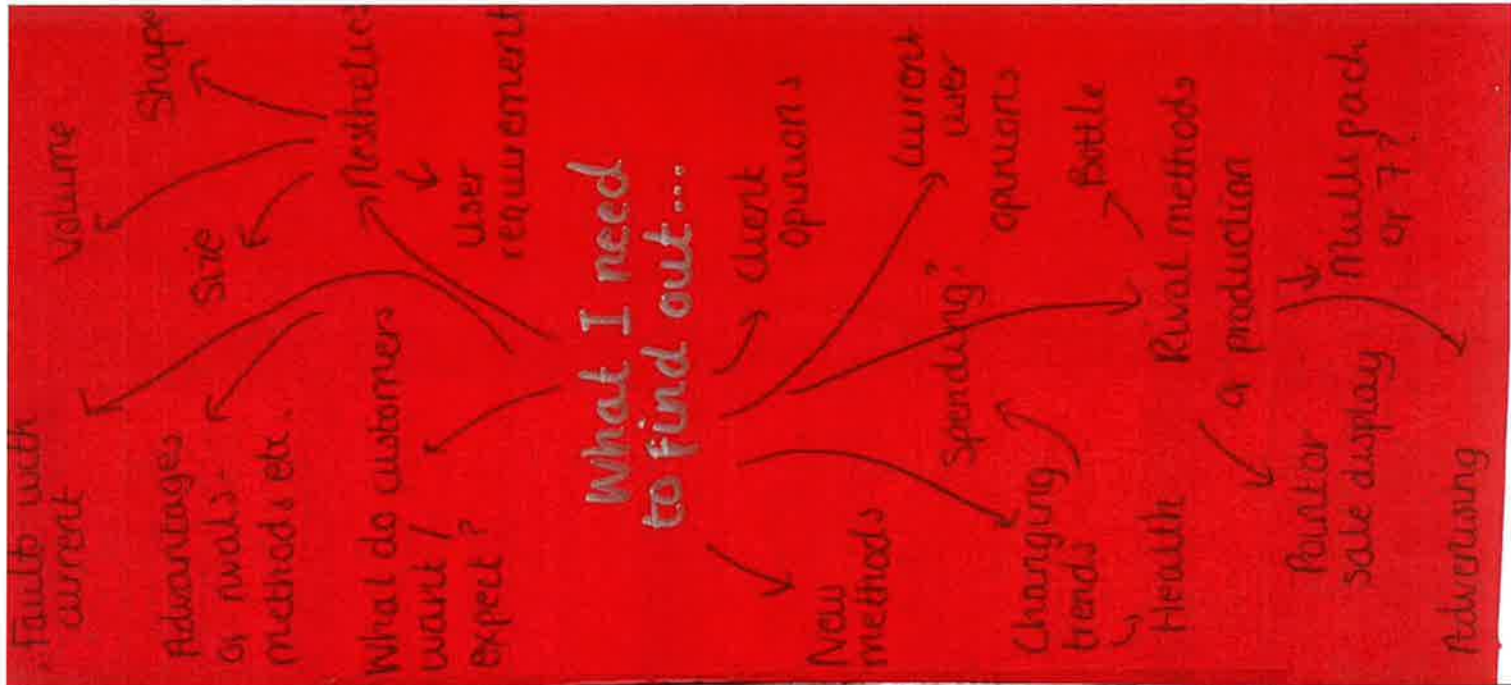 What I need
to find out...
Faults with
current
Advantages
of rivals -
methods etc.
What do customers
want /
expect?
Volume
Shape
Size
Aesthetics
User
requirement
Client
opinions
Current
user
opinions
New
methods
Changing
trends
Health
Spending?
Rival methods
of production
Bottle
Multipack
or 7?
Point of
sale display
Advertising